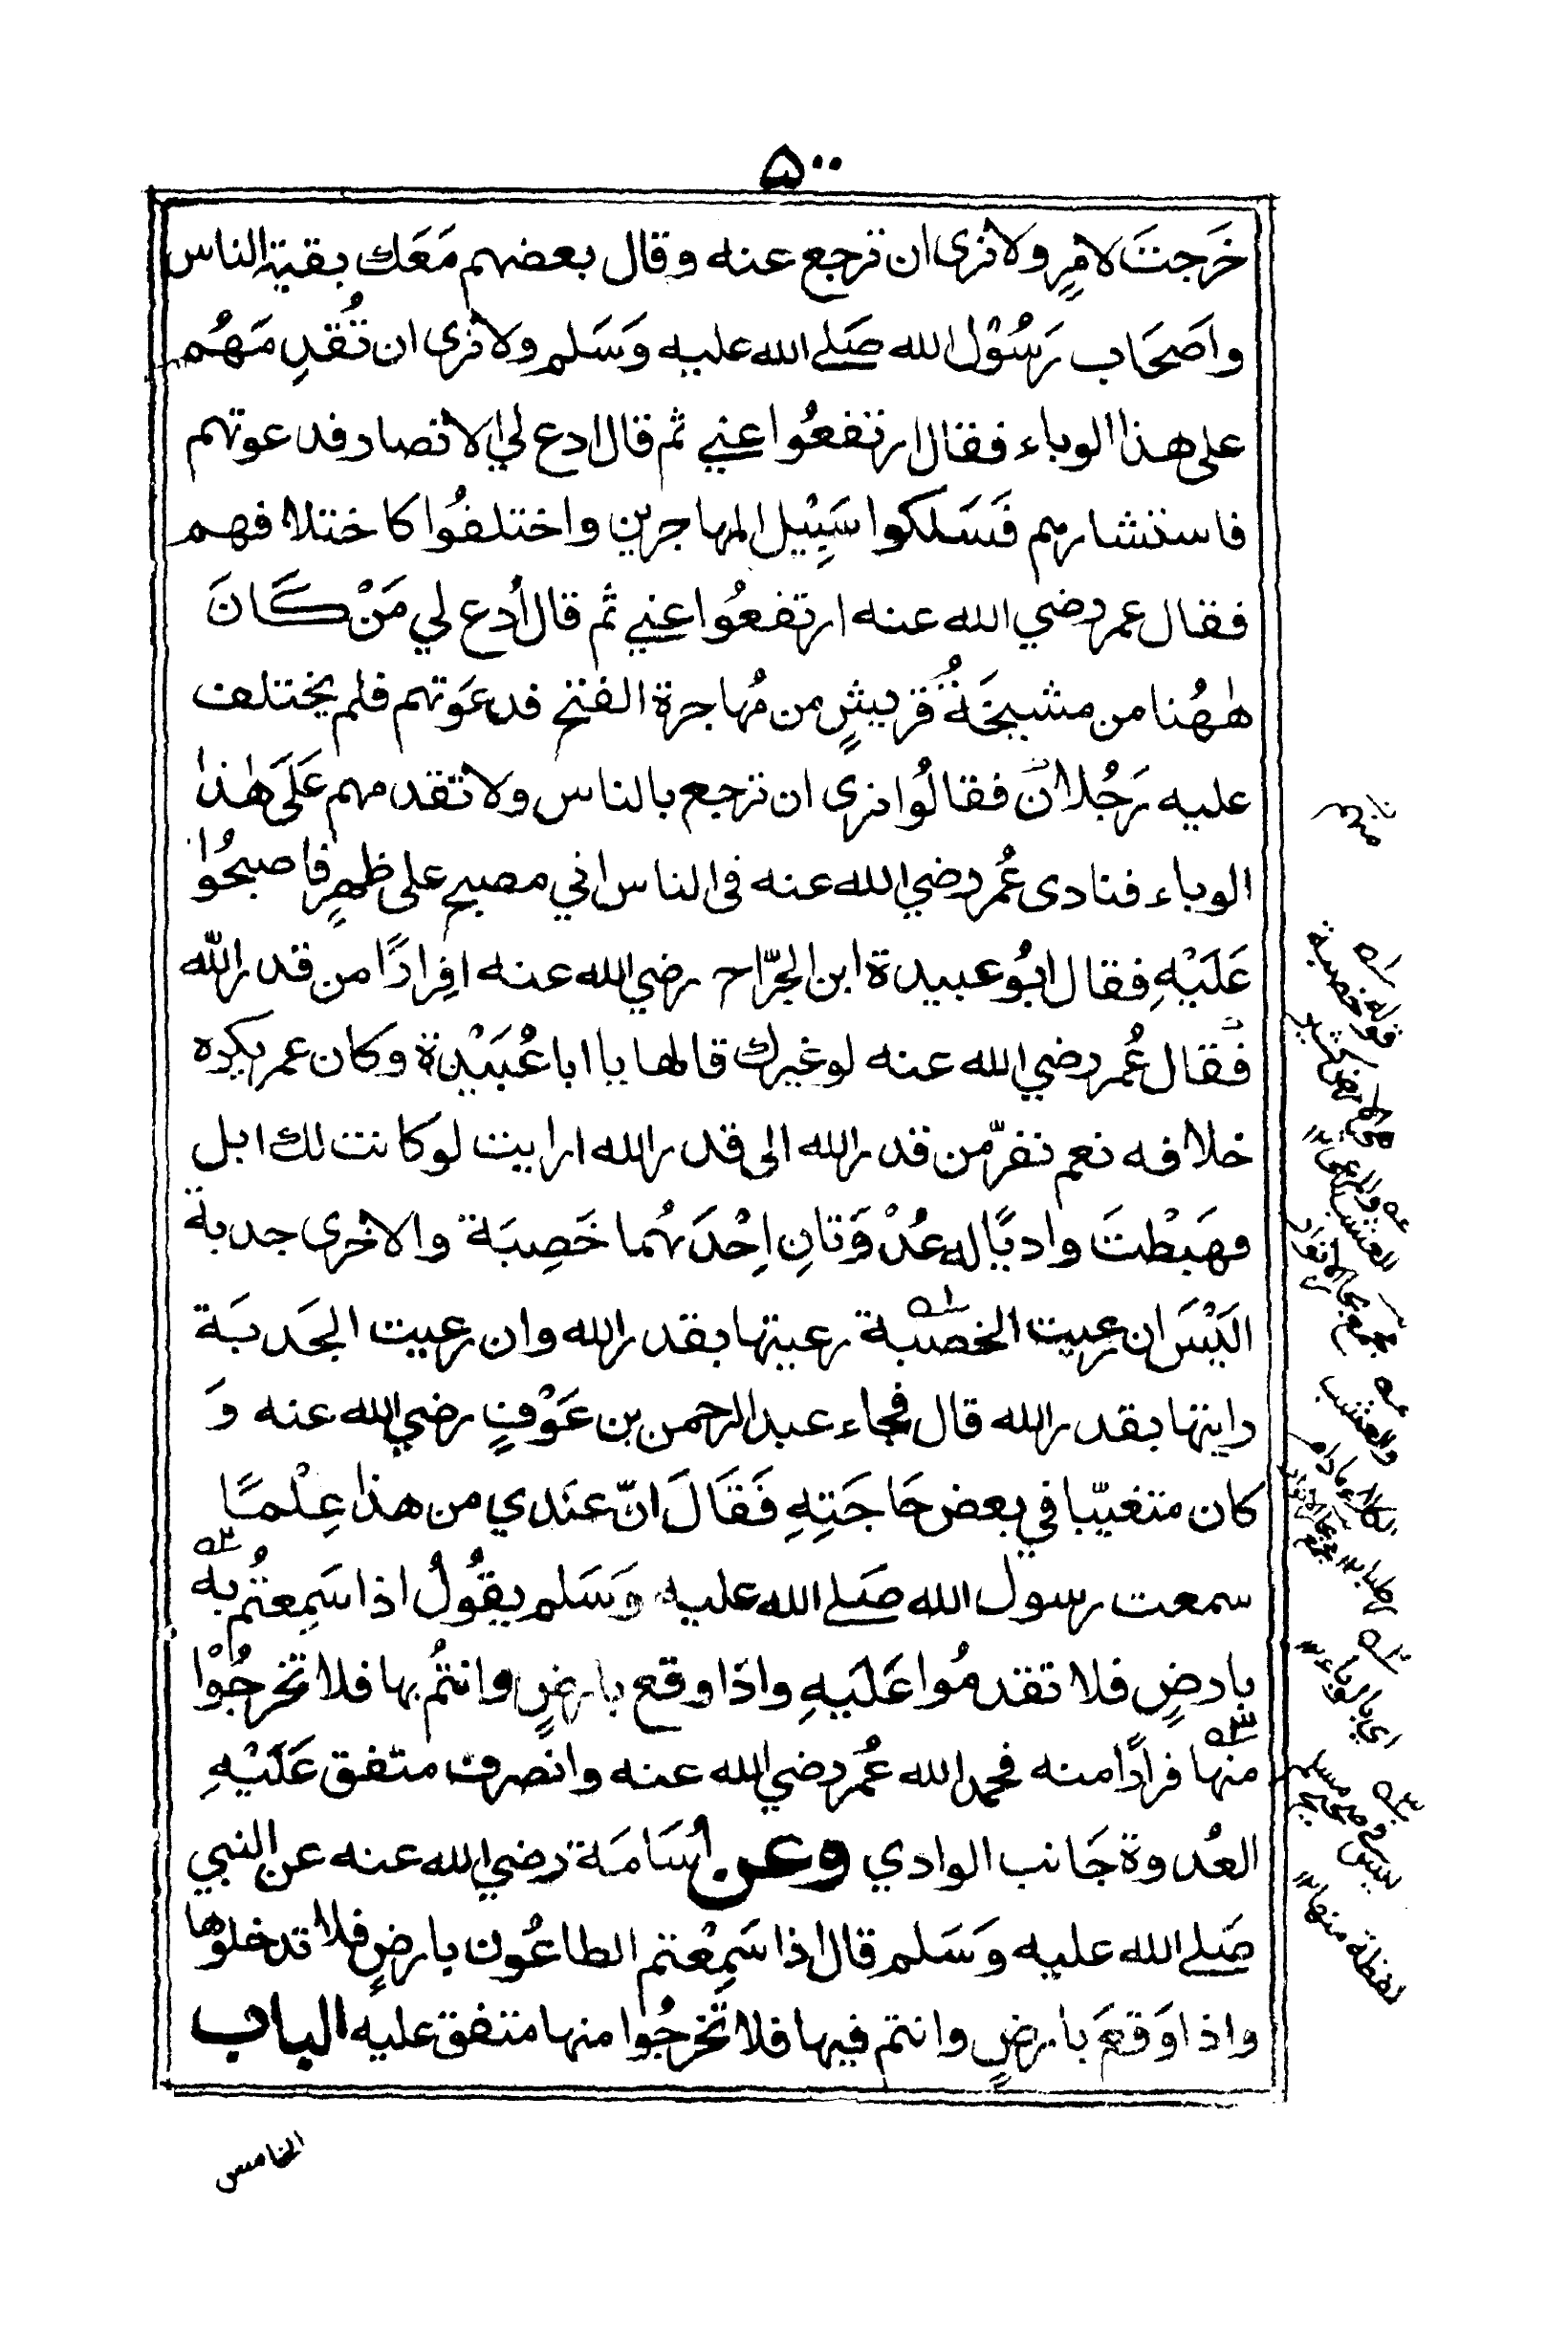 ۵۰۰
خَرَجتَ لامْرٍ ولا نرى ان ترجع عنه وقال بعضهم مَعَك بقية الناس
واَصحَاب رَسُوْل الله صَلے الله عليه وَسَلم ولا نرى ان تُقدِمَهُم
على هذا الوباء فقال ارتفعُوا عني ثم قال ادع لي الانصار فدعوتهم
فاستشارهم فَسَلكوا سَبِيْل المهاجرين واختلفُوا كاختلافهم
فقال عمر رضي الله عنه ارتفعُوا عني ثم قال اُدع لي مَنْ كَانَ
هٰهُنا من مشيخَة قُريشٍ من مُهاجرة الفتح فدعَوتهم فلم يختلف
عليه رَجُلان فقالُوا نرى ان ترجع بالناس ولا تقدمهم عَلَى هٰذا
الوباء فنادى عُمر رضي الله عنه فى الناس اني مصبح على ظهرٍ فاصبحُوا
عَلَيْهِ فقال ابُو عبيدة ابن الجرّاح رضي الله عنه افِرارًا من قدر الله
فقال عُمر رضي الله عنه لو غيرك قالها يا ابا عُبَيْدة وكان عمر يكره
خلافه نعم نفرّ من قدر الله الى قدر الله ارايت لو كانت لك ابل
فهَبَطْتَ واديًا له عُدْوَتانِ اِحْدَىهُما خَصِبَة والاخرى جدبة
اليْسَ ان رعيت الخصبة رعيتها بقدر الله وان رعيت الجَدبَة
رايتها بقدر الله قال فجاء عبد الرحمن بن عَوْفٍ رضي الله عنه وَ
كان متغيّبا في بعض حَاجَتِهِ فَقَالَ انّ عندي من هذا عِلْمًا
سمعت رسول الله صَلے الله عليه وَسَلم يقُولُ اذا سَمِعتُم به
بارضٍ فلا تقدمُوا عَلَيهِ واذا وقع بارضٍ وانتُم بها فلا تخرجُوْا
منها فرارًا منه فحمد الله عُمر رضي الله عنه وانصرف متفق عَلَيْهِ
العُدوة جَانب الوادي وعن اُسَامَة رضي الله عنه عن النبي
صَلے الله عليه وَسَلم قال اذا سَمِعْتم الطاعُون بارضٍ فلا تدخلوها
واذا وَقعَ بارضٍ وانتم فيها فلا تخرجُوا منها متفق عليه الباب
الخامس
قوله خصبة
اي بالوباء
ليس في صحيح مسلم
لفظة منها